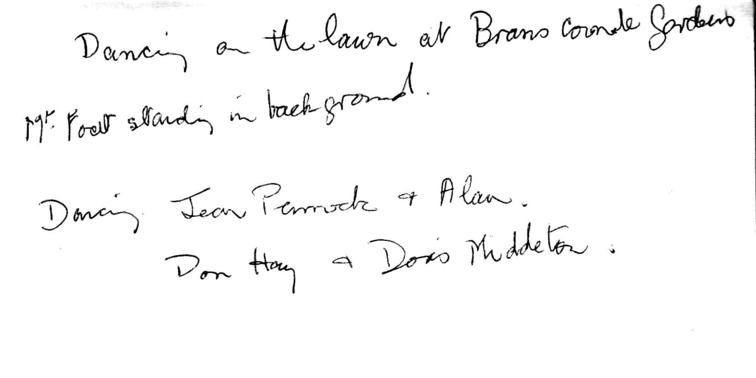 Dancing on the lawn at Brans Coombe Gardens
Mr. Foott standing in background.
Dancing Jean Pennock & Alan.
Don Hay & Doris Middleton.